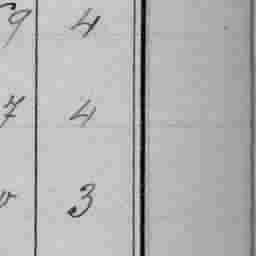 9 4
7 4
3